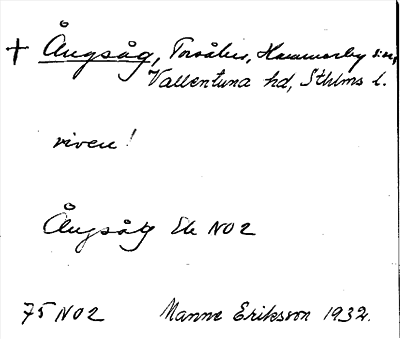 † Ångsåg, Torsåker, Hammarby sn,
Vallentuna hd, Sthlms l.
riven!
Ångsåg Ek NO2
75 NO2 Manne Eriksson 1932.